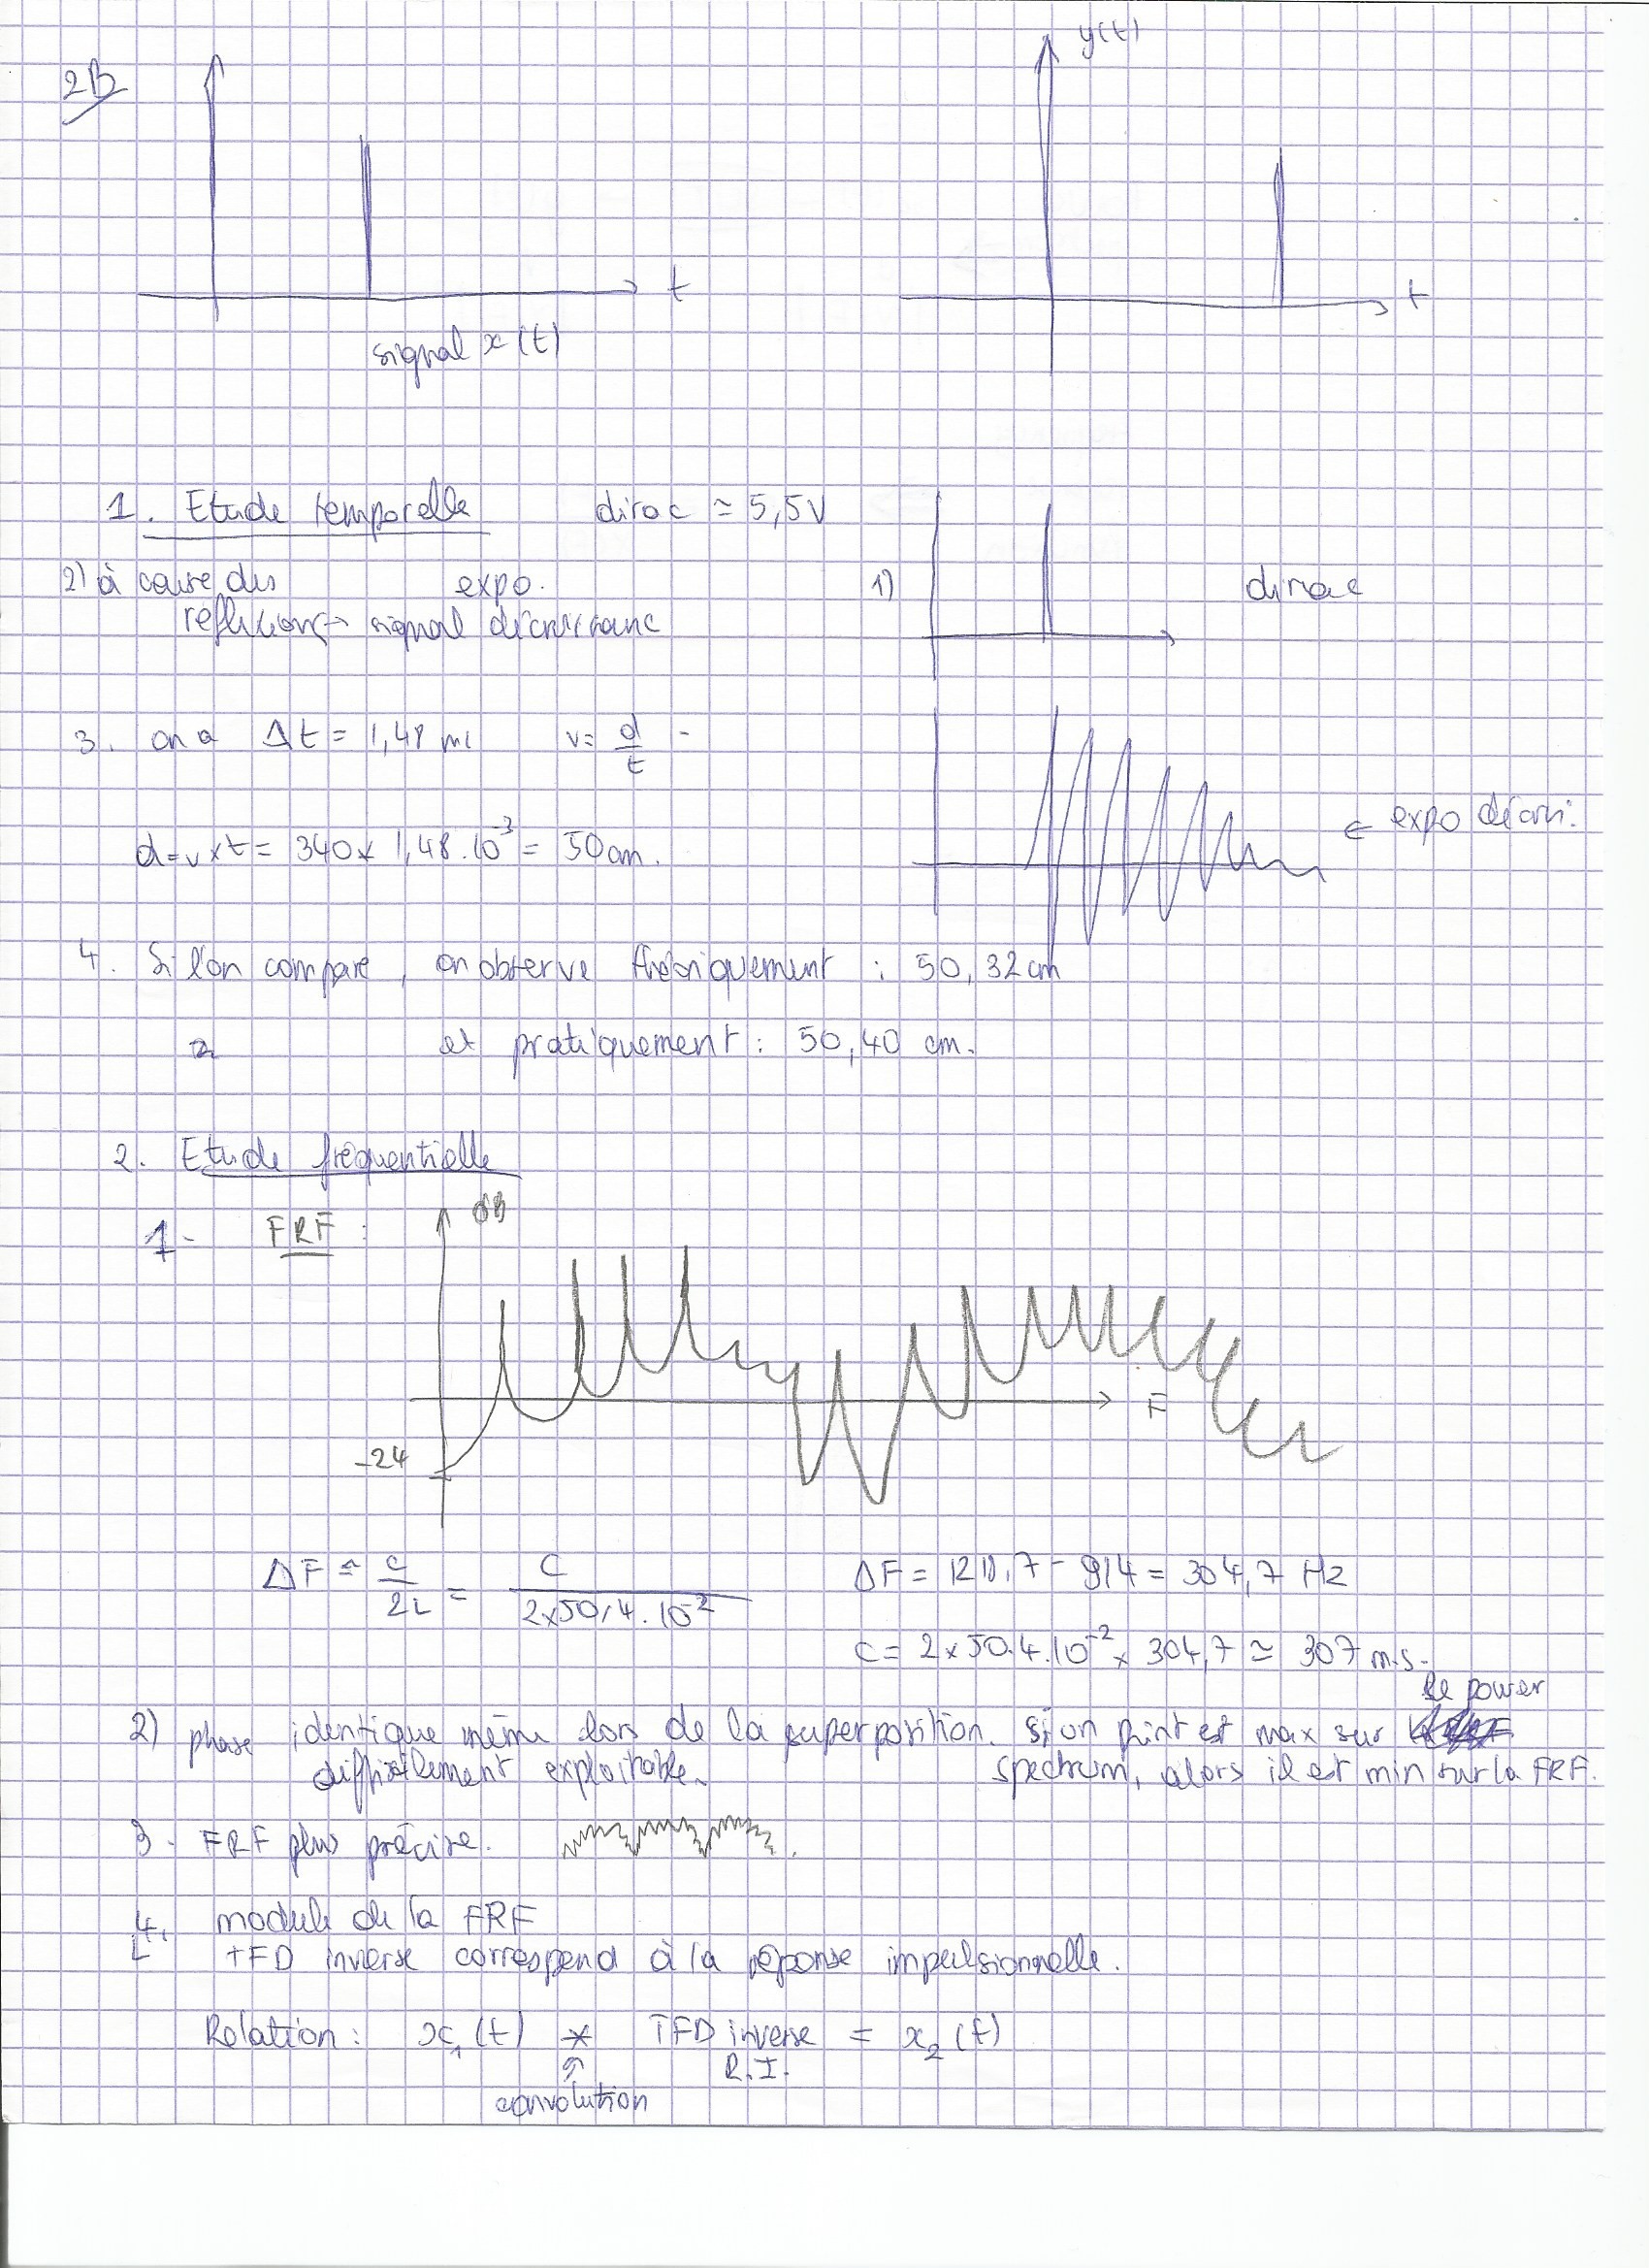 2B
y(t)
t
t
signal x(t)
1. Etude temporelle dirac ≃ 5,5V
2) à cause des expo.
réflexions → signal décroissant
1) dirac
3. on a Δt = 1,48 ms v = d/t
← expo décroi.
d = v x t = 340 x 1,48.10^-3 = 50 cm.
4. Si l'on compare, on observe théoriquement : 50,32 cm
et pratiquement : 50,40 cm.
2. Etude fréquentielle
1- FRF :
dB
F
-24
ΔF = c/2L = C/(2x50,4.10^-2) ΔF = 1218,7 - 914 = 304,7 Hz
C = 2 x 50.4.10^-2 x 304,7 ≃ 307 m.s-
le power
2) phase identique même lors de la superposition. Si un point est max sur
difficilement exploitable. spectrum, alors il est min sur la FRF.
3- FRF plus précise.
4. module de la FRF
TFD inverse correspond à la réponse impulsionnelle.
Relation : x₁(t) * TFD inverse = x₂(t)
R.I.
convolution